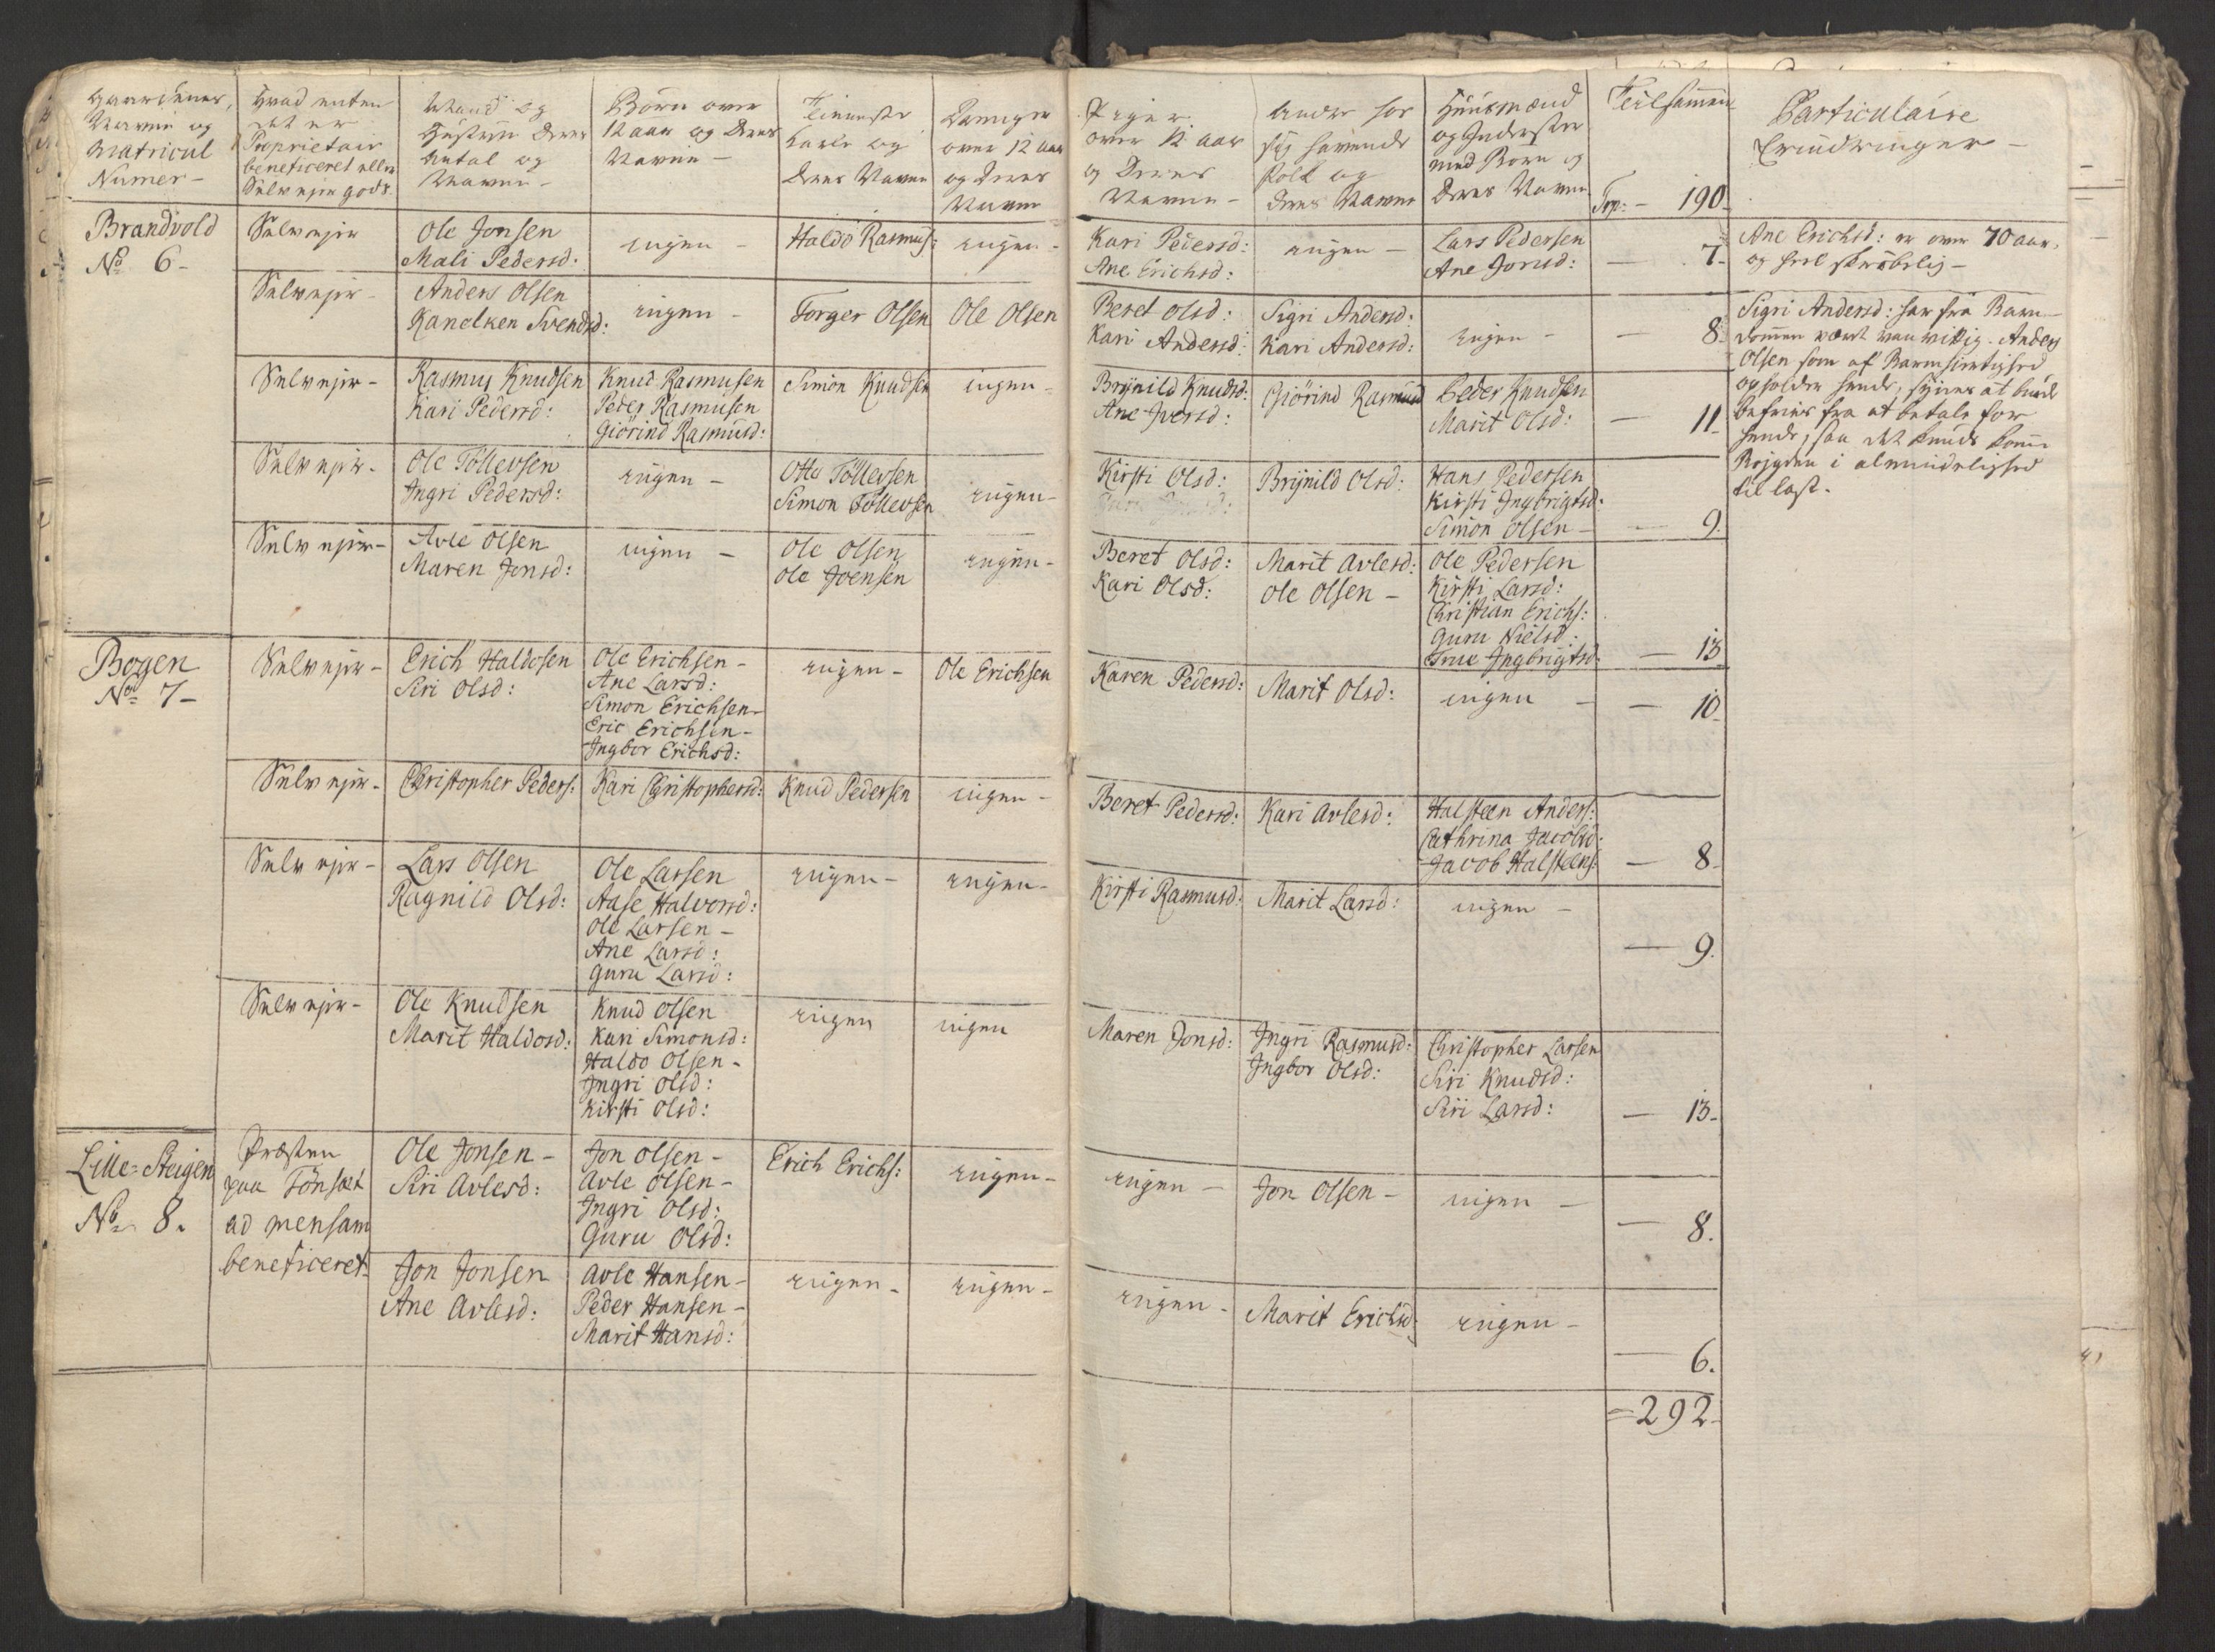 Gaardenes,
Navne og
Matricul
Numer –
Hvad enten
det er
Proprietair
beneficeret eller
Selw ejer gods.
Mand og
Hustrue deres
Antal og
Navne –
Börn over
12 aar og deres
Navne –
Tienneste
Karle og
deres Navne
Drenger
over 12 aar
og deres
Navne
Piger
over 12 aar
og deres
Navne –
Andre hos
sig havende
folk og
deres Navne
Huusmænd
og Inderster
med Börn og
deres Navne
Teilsammen
Trp: – 190
Particulaire
Erindringer –
Brandvold
No 6 –
Selw ejer
Ole Jonsen
Mali Pedersd:
ingen –
Haldo Rasmus:
ingen –
Kari Pedersd:
Ane Erichsd:
ingen –
Lars Pedersen
Ane Jonsd:
— 7 –
Ane Erichsd: er over 70 aar,
og heel skröbelig –
Selw ejer –
Anders Olsen
Karelken Svendsd:
ingen –
Torger Olsen
Ole Olsen
Beret Olsd:
Kari Andersd:
Sigri Andersd:
Kari Andersd:
ingen –
— 8.
Sigri Andersd: har fra Barn-
dommen været vanvittig. Anders
Olsen som af Barmhiertighed
opholder hende, synes at burde
befries fra at betale for
hende, saa det kunde komme
Bojgden i almindelighed
til last.
Selw ejer –
Rasmus Knudsen
Kari Pedersd:
Knud Rasmusen
Peder Rasmusen
Giörind Rasmusd:
Simon Knudsen
ingen –
Brynild Knudsd:
Ane Iversd:
Giörind Rasmusd
Peder Knudsen
Marit Olsd:
— 11 –
Selw ejer –
Ole Töllevsen
Ingri Pedersd:
ingen –
Otte Töllevsen
Simon Töllevsen
ingen –
Kirsti Olsd:
Brynild Olsd:
Hans Pedersen
Kirsti Ingbrigtsd:
Simon Olsen –
— 9.
Selw ejer –
Avle Olsen
Maren Jonsd:
ingen –
Ole Olsen
Ole Joensen
ingen –
Beret Olsd:
Kari Olsd:
Marit Avlesd:
Ole Olsen –
Ole Pedersen
Kirsti Larsd:
Christian Erichs:
Guru Nielsd:
True Ingbrigtsd:
— 13
Bogen
No 7 –
Selw ejer –
Erich Haldosen
Siri Olsd:
Ole Erichsen –
Ane Larsd:
Simon Erichsen –
Eric Erichsen –
Ingbor Erichsd:
ingen –
Ole Erichsen
Karen Pedersd:
Marit Olsd:
ingen –
— 10 –
Selw ejer –
Christopher Peders:
Kari Christophersd:
Knud Pedersen
ingen –
Beret Pedersd:
Kari Avlesd:
Halsteen Anders:
Cathrina Jacobsd:
Jacob Halsteens:
— 8 –
Selw ejer –
Lars Olsen
Ragnild Olsd:
Ole Larsen
Aase Halvorsd:
Ole Larsen –
Ane Larsd:
Guru Larsd:
ingen –
ingen –
Kirsti Rasmusd:
Marit Larsd:
ingen –
— 9.
Selw ejer –
Ole Knudsen
Marit Haldosd:
Knud Olsen
Kari Simonsd:
Haldo Olsen –
Ingri Olsd:
Kirsti Olsd:
ingen
ingen
Maren Jonsd:
Ingri Rasmusd:
Ingbor Olsd:
Christopher Larsen
Siri Knudsd:
Siri Larsd:
— 13 –
Lille-Steigen
No 8.
Præsten
paa Tönset
ad mensam
beneficeret
Ole Jonsen –
Siri Avlesd:
Jon Olsen –
Avle Olsen –
Ingri Olsd:
Guru Olsd:
Erich Erichs:
ingen –
ingen –
Jon Olsen –
ingen –
— 8.
Jon Jonsen
Ane Avlesd:
Avle Hansen –
Peder Hansen –
Marit Hansd:
ingen –
ingen –
ingen –
Marit Erichsd:
ingen –
— 6.
= 292 –